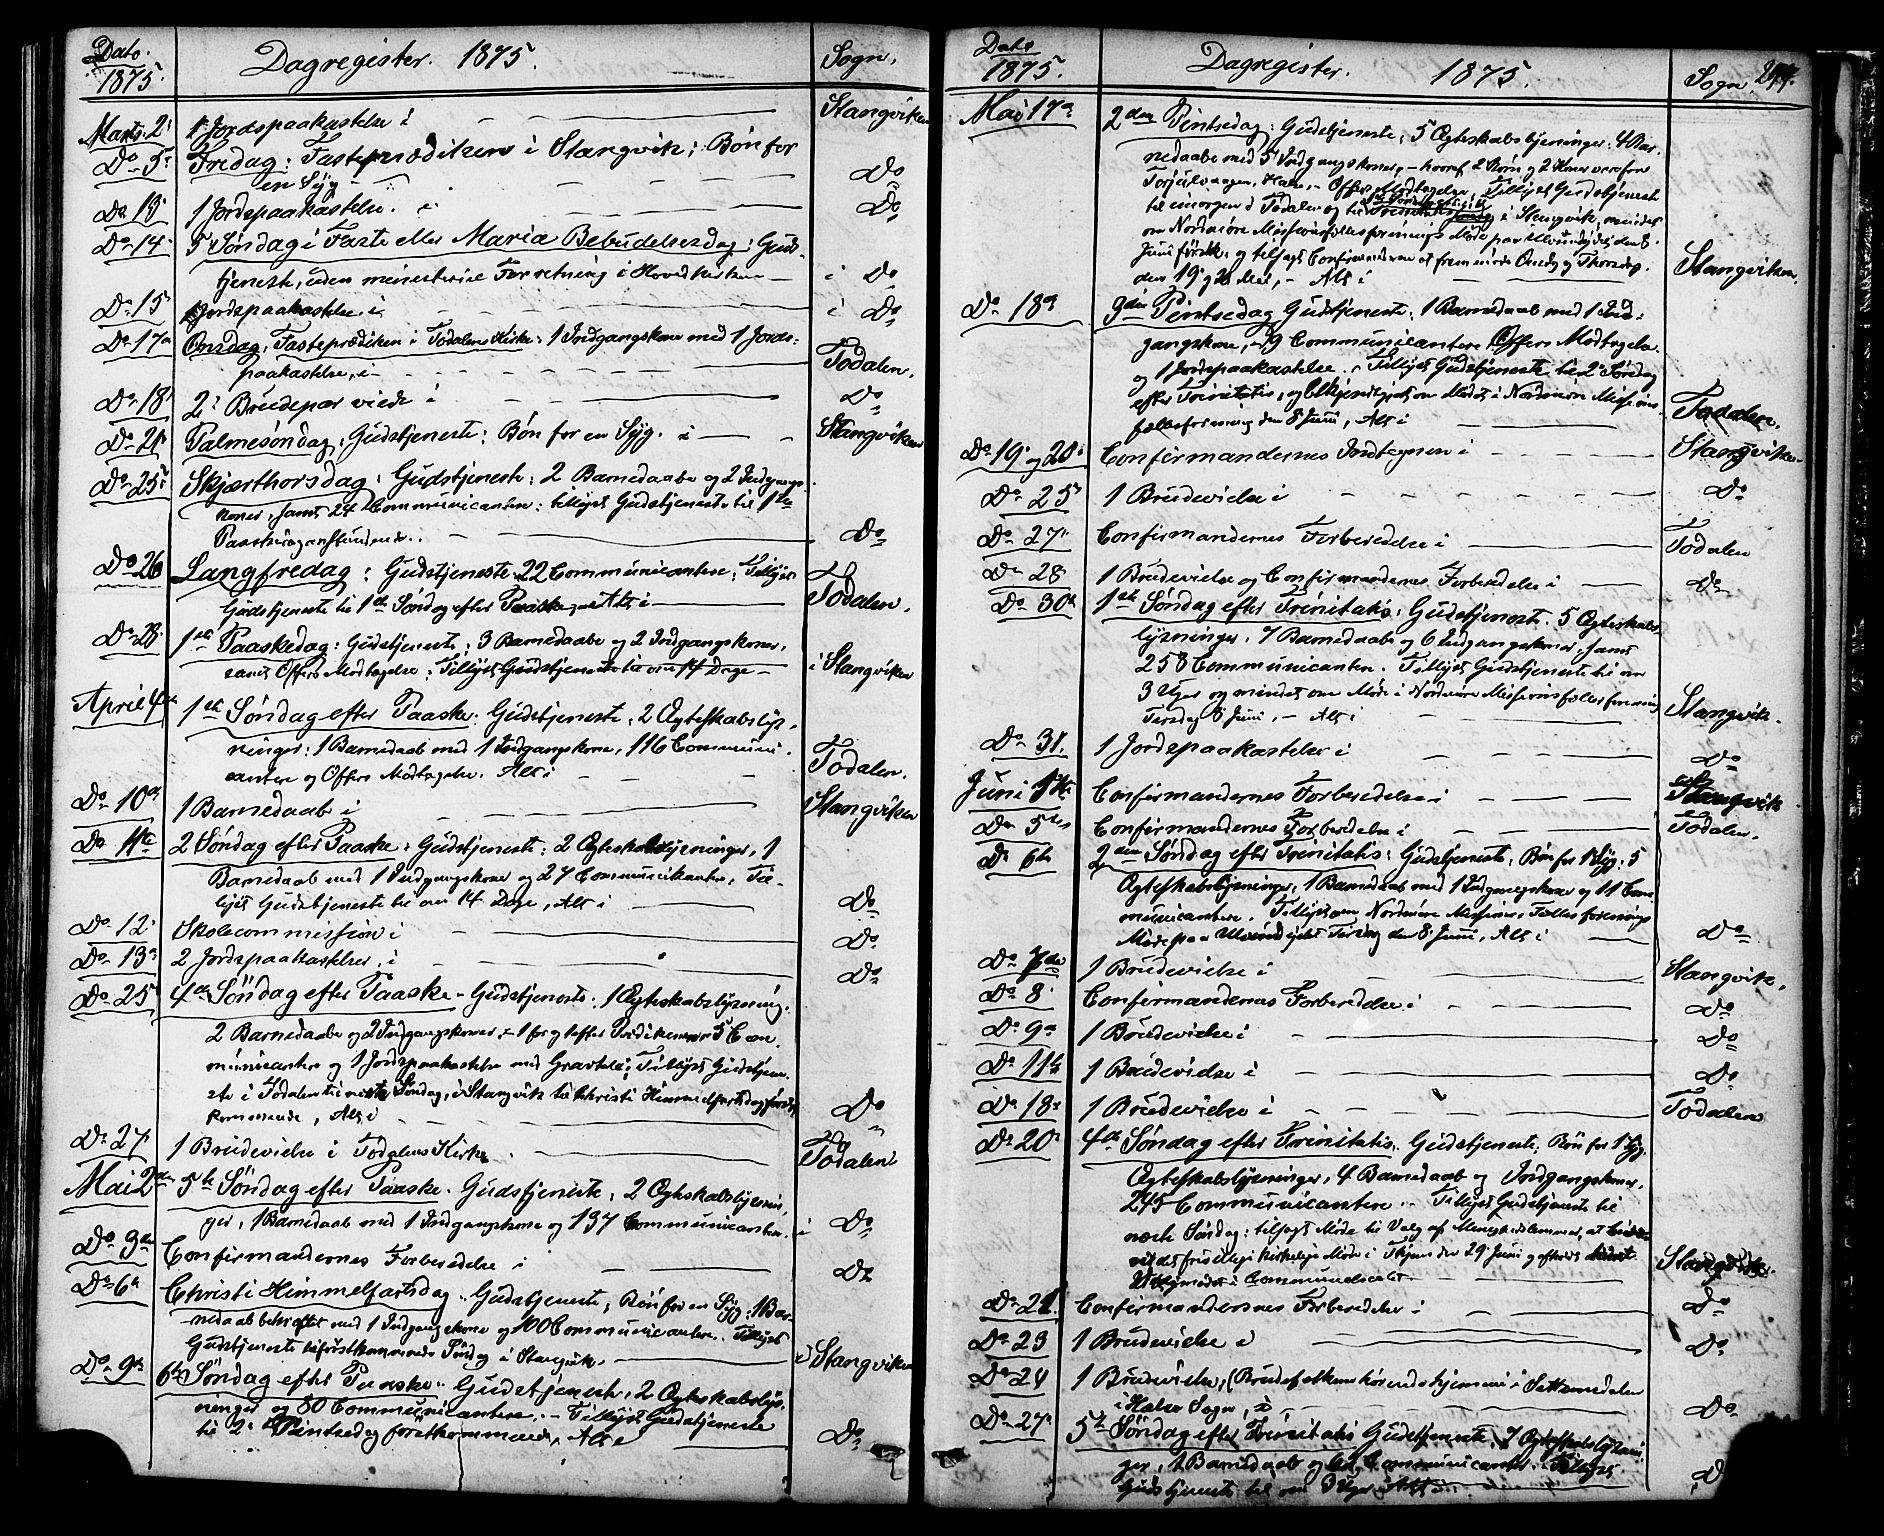 Dato 1875. Dagregister. 1875. Sogn.
Marts 2. 1 Jordspaakastelse i Stangviken
Do 5. Fredag: Fasteprædiken i Stangvik; Bøn for
en Syg Do
Do 13. 1 Jordspaakastelse. i Do
Do 14. 5 Søndag i Faste eller Maria Bebudelsesdag: Guds-
tjeneste, uden ministeriel Forretning i Hovedkirken i Do
Do 15. 1 Jordspaakastelse i i Do
Do 17. Onsdag: Fasteprædiken i Todalens Kirke: 1 Indgangskone med 1 Jords-
paakastelse, i Todalen.
Do 18. 2 Brudepar viede i Do
Do 21. Palmesøndag: Gudstjeneste: Bøn for en Syg. i Stangviken
Do 25. Skjærthorsdag: Gudstjeneste: 2 Barnedaabe og 2 Indgangs-
koner, samt 24 Communicantere: tillyst Gudstjeneste til 1ste
Paaskedag Do
Do 26 Langfredag: Gudstjeneste 22 Communicantere: Tillyst
Gudstjeneste til 1ste Søndag efter Paaske Alt i Todalen.
Do 28. 1ste Paaskedag: Gudstjeneste: 3 Barnedaabe og 2 Indgangskoner,
samt Offers Modtagelse: Tillyst Gudstjeneste til om 14 Dage i Stangviken
April 4de 1ste Søndag efter Paaske: Gudstjeneste: 2 Ægteskabslys-
ninger: 1 Barnedaab med 1 Indgangskone, 116 Communi-
cantere og Offers Modtagelse. Alt i Todalen.
Do 10de 1 Barnedaab i Stangviken
Do 11te 2 Søndag efter Paaske: Gudstjeneste: 2 Ægteskabslysninger, 1
Barnedaab med 1 Indgangskone og 27 Communicantere, Til-
lyst Gudstjeneste til om 14 Dage, Alt i Do
Do 12. Skolecommission i Do
Do 13. 2 Jordspaakastelser. i Do
Do 25 4de Søndag efter Paaske. Gudstjeneste: 1 Ægteskabslysning.
2 Barnedaabe og 2 Indgangskoner 5 Com-
municantere og 1 Jordspaakastelse med Gravtale; Tillyst Gudstjene-
ste i Todalen til næste Søndag, i Stangvik til Christi Himmelfartsdag førstk
kommende, Alt i Do
Do 27. 1 Brudevielse i Todalens Kirke. Todalen
Mai 2den 5te Søndag efter Paaske. Gudstjeneste, 2 Ægteskabslysnin-
ger, 1 Barnedaab med 1 Indgangskone og 137 Communicantere. i Do
Do 3die Confirmandernes Forberedelse i Do
Do 6te Christi Himmelfartsdag. Gudstjeneste; Bøn for en Syg: 1 Bar-
nedaab bekræftet med 1 Indgangskone og 100 Communicantere. Tillyst
Gudstjeneste til førstkommende Søndag i Stangvik. i Stangviken
Do 9de 6te Søndag efter Paaske. Gudstjeneste: 2 Ægteskabslys-
ninger og 80 Communicantere. Tillyst Gudstjeneste
til 2. Pintsedag førstkommende, Alt i Do
Dato 1875. Dagregister. 1875. Sogn.
Mai 17. 2den Pintsedag: Gudstjeneste; 5 Ægteskabslysninger: 4 Bar-
nedaabe med 5 Indgangskoner, hvoraf 2 Børn og 2 Koner vare fra
Halse, Offers Modtagelse, Tillyst Gudstjeneste
til imorgen i Todalen og til i Stangvik, mindet
om Nordmøre Missionsfællesforenings Møde paa den 8.
Juni førstk. og tilsagt Confirmanderne at fremmøde Onsdag og Thorsdag
den 19. og 20 Mai, Alt i Stangviken.
Do 18. 3die Pintsedag Gudstjeneste: 1 Barnedaab med 1 Ind-
gangskone, 9 Communicantere Offers Modtagelse
og 1 Jordspaakastelse. Tillyst Gudstjeneste til 2. Søndag
efter Trinitatis, og bekjendtgjort om Mødet i Nordmøre Missions-
fællesforening den 8 Juni, Alt i Todalen.
Do 19. og 20. Confirmandernes Indtegnen i Stangviken
Do 25. 1 Brudevielse i Do
Do 27. Confirmandernes Forberedelse i Todalen
Do 28 1 Brudevielse og Confirmandernes Forberedelse i Do
Do 30. 1ste Søndag efter Trinitatis: Gudstjeneste. 5 Ægteskabs-
lysninger, 7 Barnedaabe og 6 Indgangskoner, samt
258 Communicantere. Tillyst Gudstjeneste til om
3 Uger og mindet om Møde i Nordmøre Missionsfællesforening
Tirsdag 8 Juni, Alt i Stangvik.
Do 31. 1 Jordspaakastelse i Do
Juni 1ste Confirmandernes Forberedelse i Stangvik
Do 5te Confirmandernes Forberedelse i Todalen.
Do 6te 2den Søndag efter Trinitatis: Gudstjeneste, Bøn for 1 Syg: 5
Ægteskabslysninger, 1 Barnedaab med 1 Indgangskone og 11 Com-
municantere. Tillyst om Nordmøre Missions-Fællesforenings
Møde paa Tirsdag den 8 Juni, Alt i Do
Do 7de 1 Brudevielse i Stangvik.
Do 8. Confirmandernes Forberedelse i Do
Do 9. 1 Brudevielse i Do
Do 11te 1 Brudevielse i Do
Do 18. 1 Brudevielse i Todalen
Do 20. 4de Søndag efter Trinitatis. Gudstjeneste: Bøn for 1 Syg.
Ægteskabslysninger, 4 Barnedaab og Indgangskoner,
245 Communicantere. Tillyst Gudstjeneste til
næste Søndag: tilsagt Møde til Valg af Menighedslemmer, at
ved det frivillige kirkelige Møde i den 29 Juni
i Communelocalet Stangviken
Do 21. Confirmandernes Forberedelse i Do
Do 23 1 Brudevielse i Do
Do 24 1 Brudevielse, (Brudefolkene hørende hjemme i
i Halse Sogn, i Do
Do 27. 5te Søndag efter Trinitatis Gudstjeneste, 7 Ægteskabslysnin-
ger, 1 Barnedaab og Communicanter. Tillyst
Gudstjeneste til om 3 Uger Alt i D